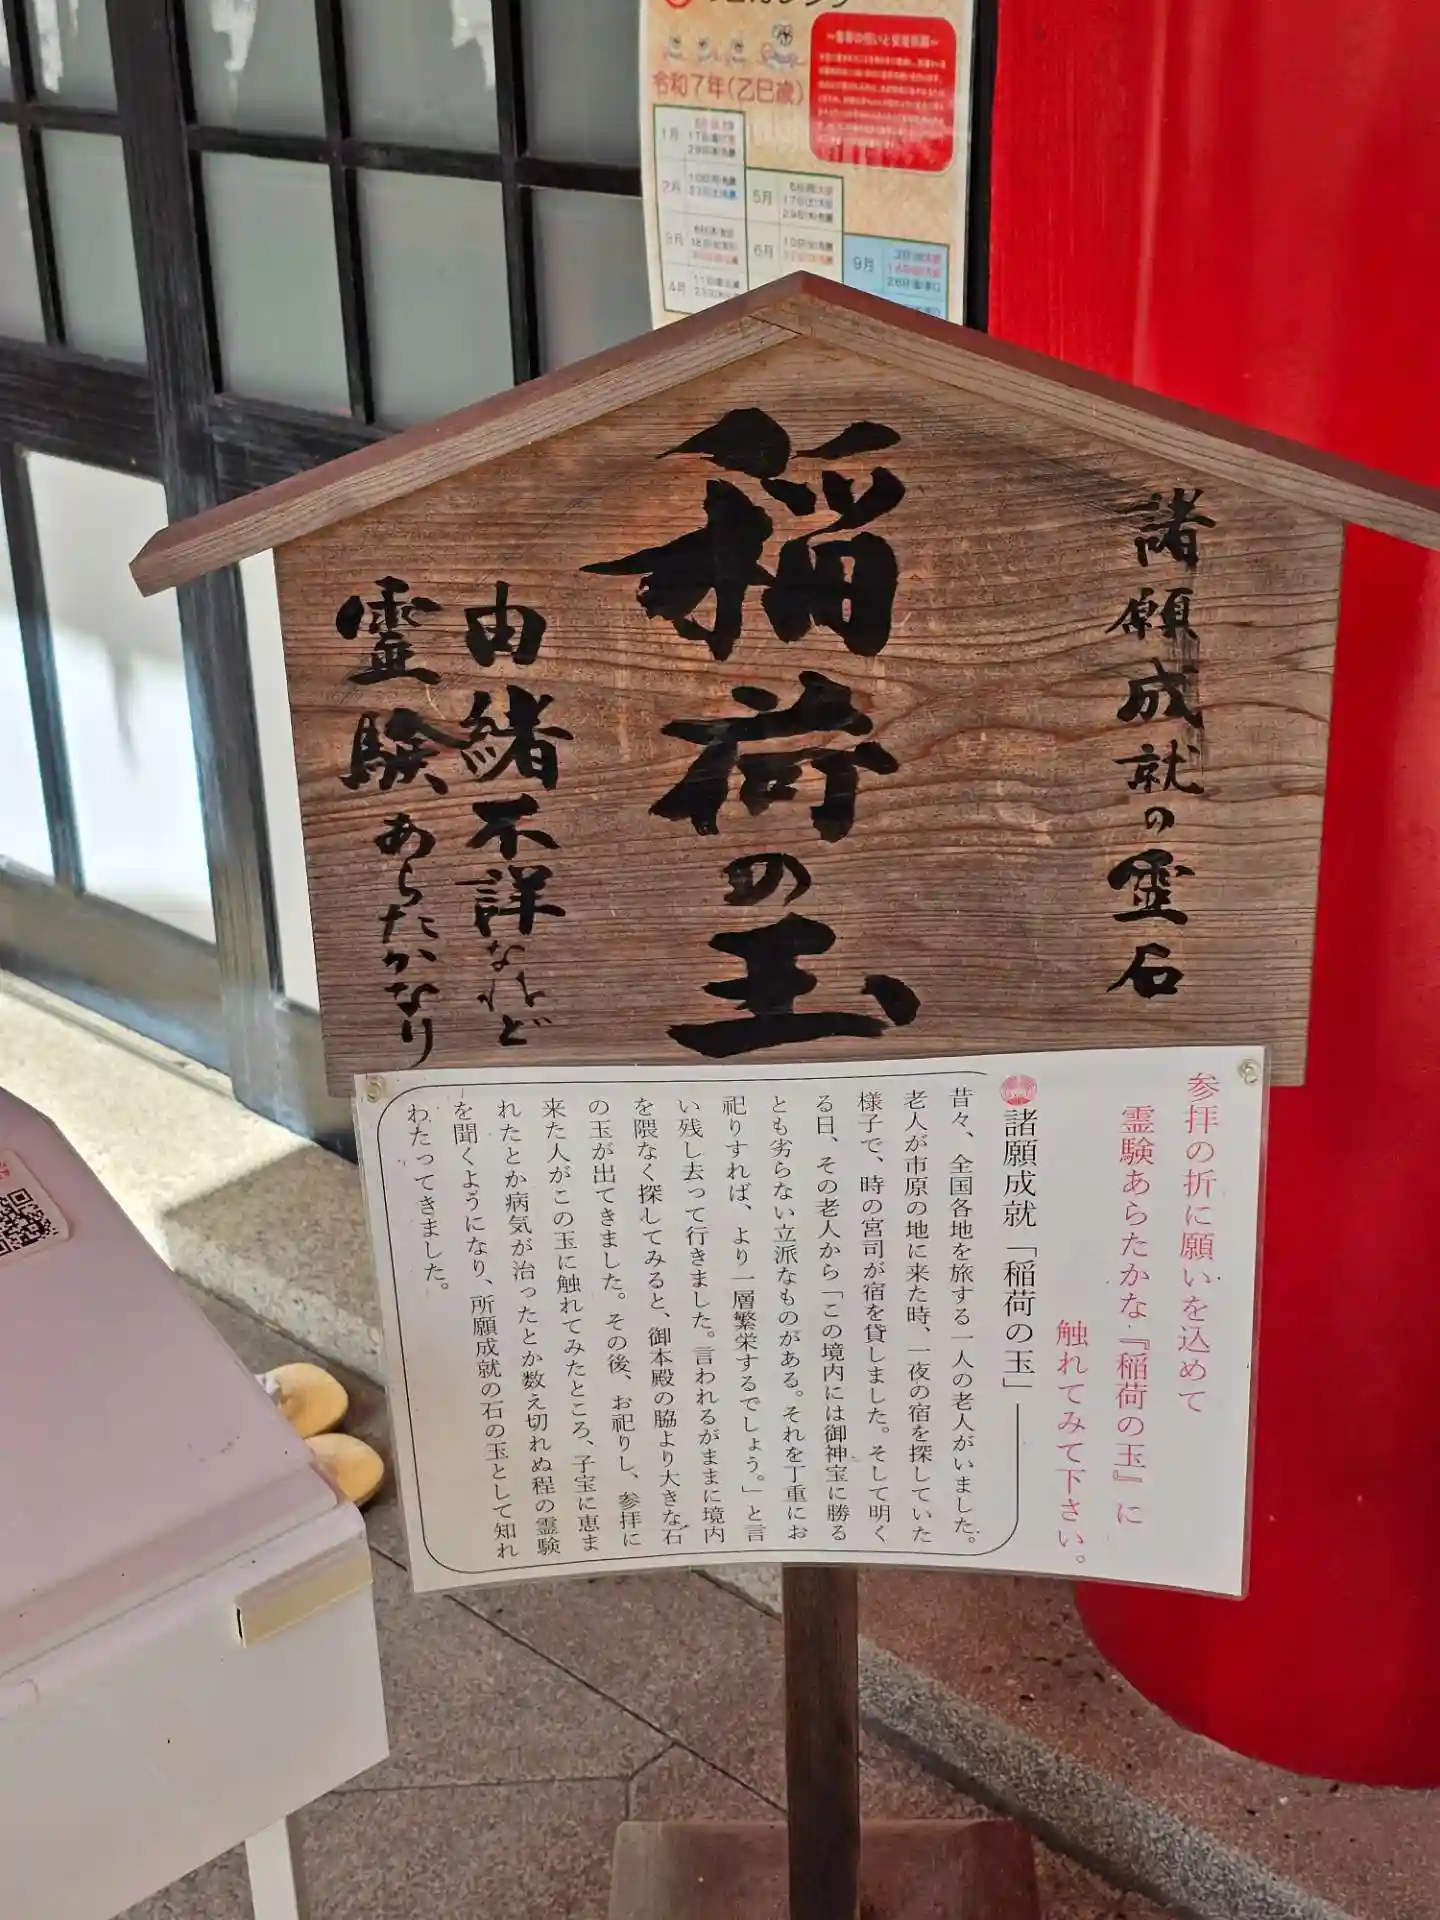 令和7年(乙巳歳)
1月
2月
3月
4月
5月
17日(土)大安
29日(木)先勝
6月
9月
諸願成就の霊石
稲荷の玉
由緒不詳なれど
霊験あらたかなり
参拝の折に願いを込めて
霊験あらたかな『稲荷の玉』に
触れてみて下さい。
諸願成就「稲荷の玉」
昔々、全国各地を旅する一人の老人がいました。
老人が市原の地に来た時、一夜の宿を探していた
様子で、時の宮司が宿を貸しました。そして明く
る日、その老人から「この境内には御神宝に勝る
とも劣らない立派なものがある。それを丁重にお
祀りすれば、より一層繁栄するでしょう。」と言
い残し去って行きました。言われるがままに境内
を隈なく探してみると、御本殿の脇より大きな石
の玉が出てきました。その後、お祀りし、参拝に
来た人がこの玉に触れてみたところ、子宝に恵ま
れたとか病気が治ったとか数え切れぬ程の霊験
を聞くようになり、所願成就の石の玉として知れ
わたってきました。